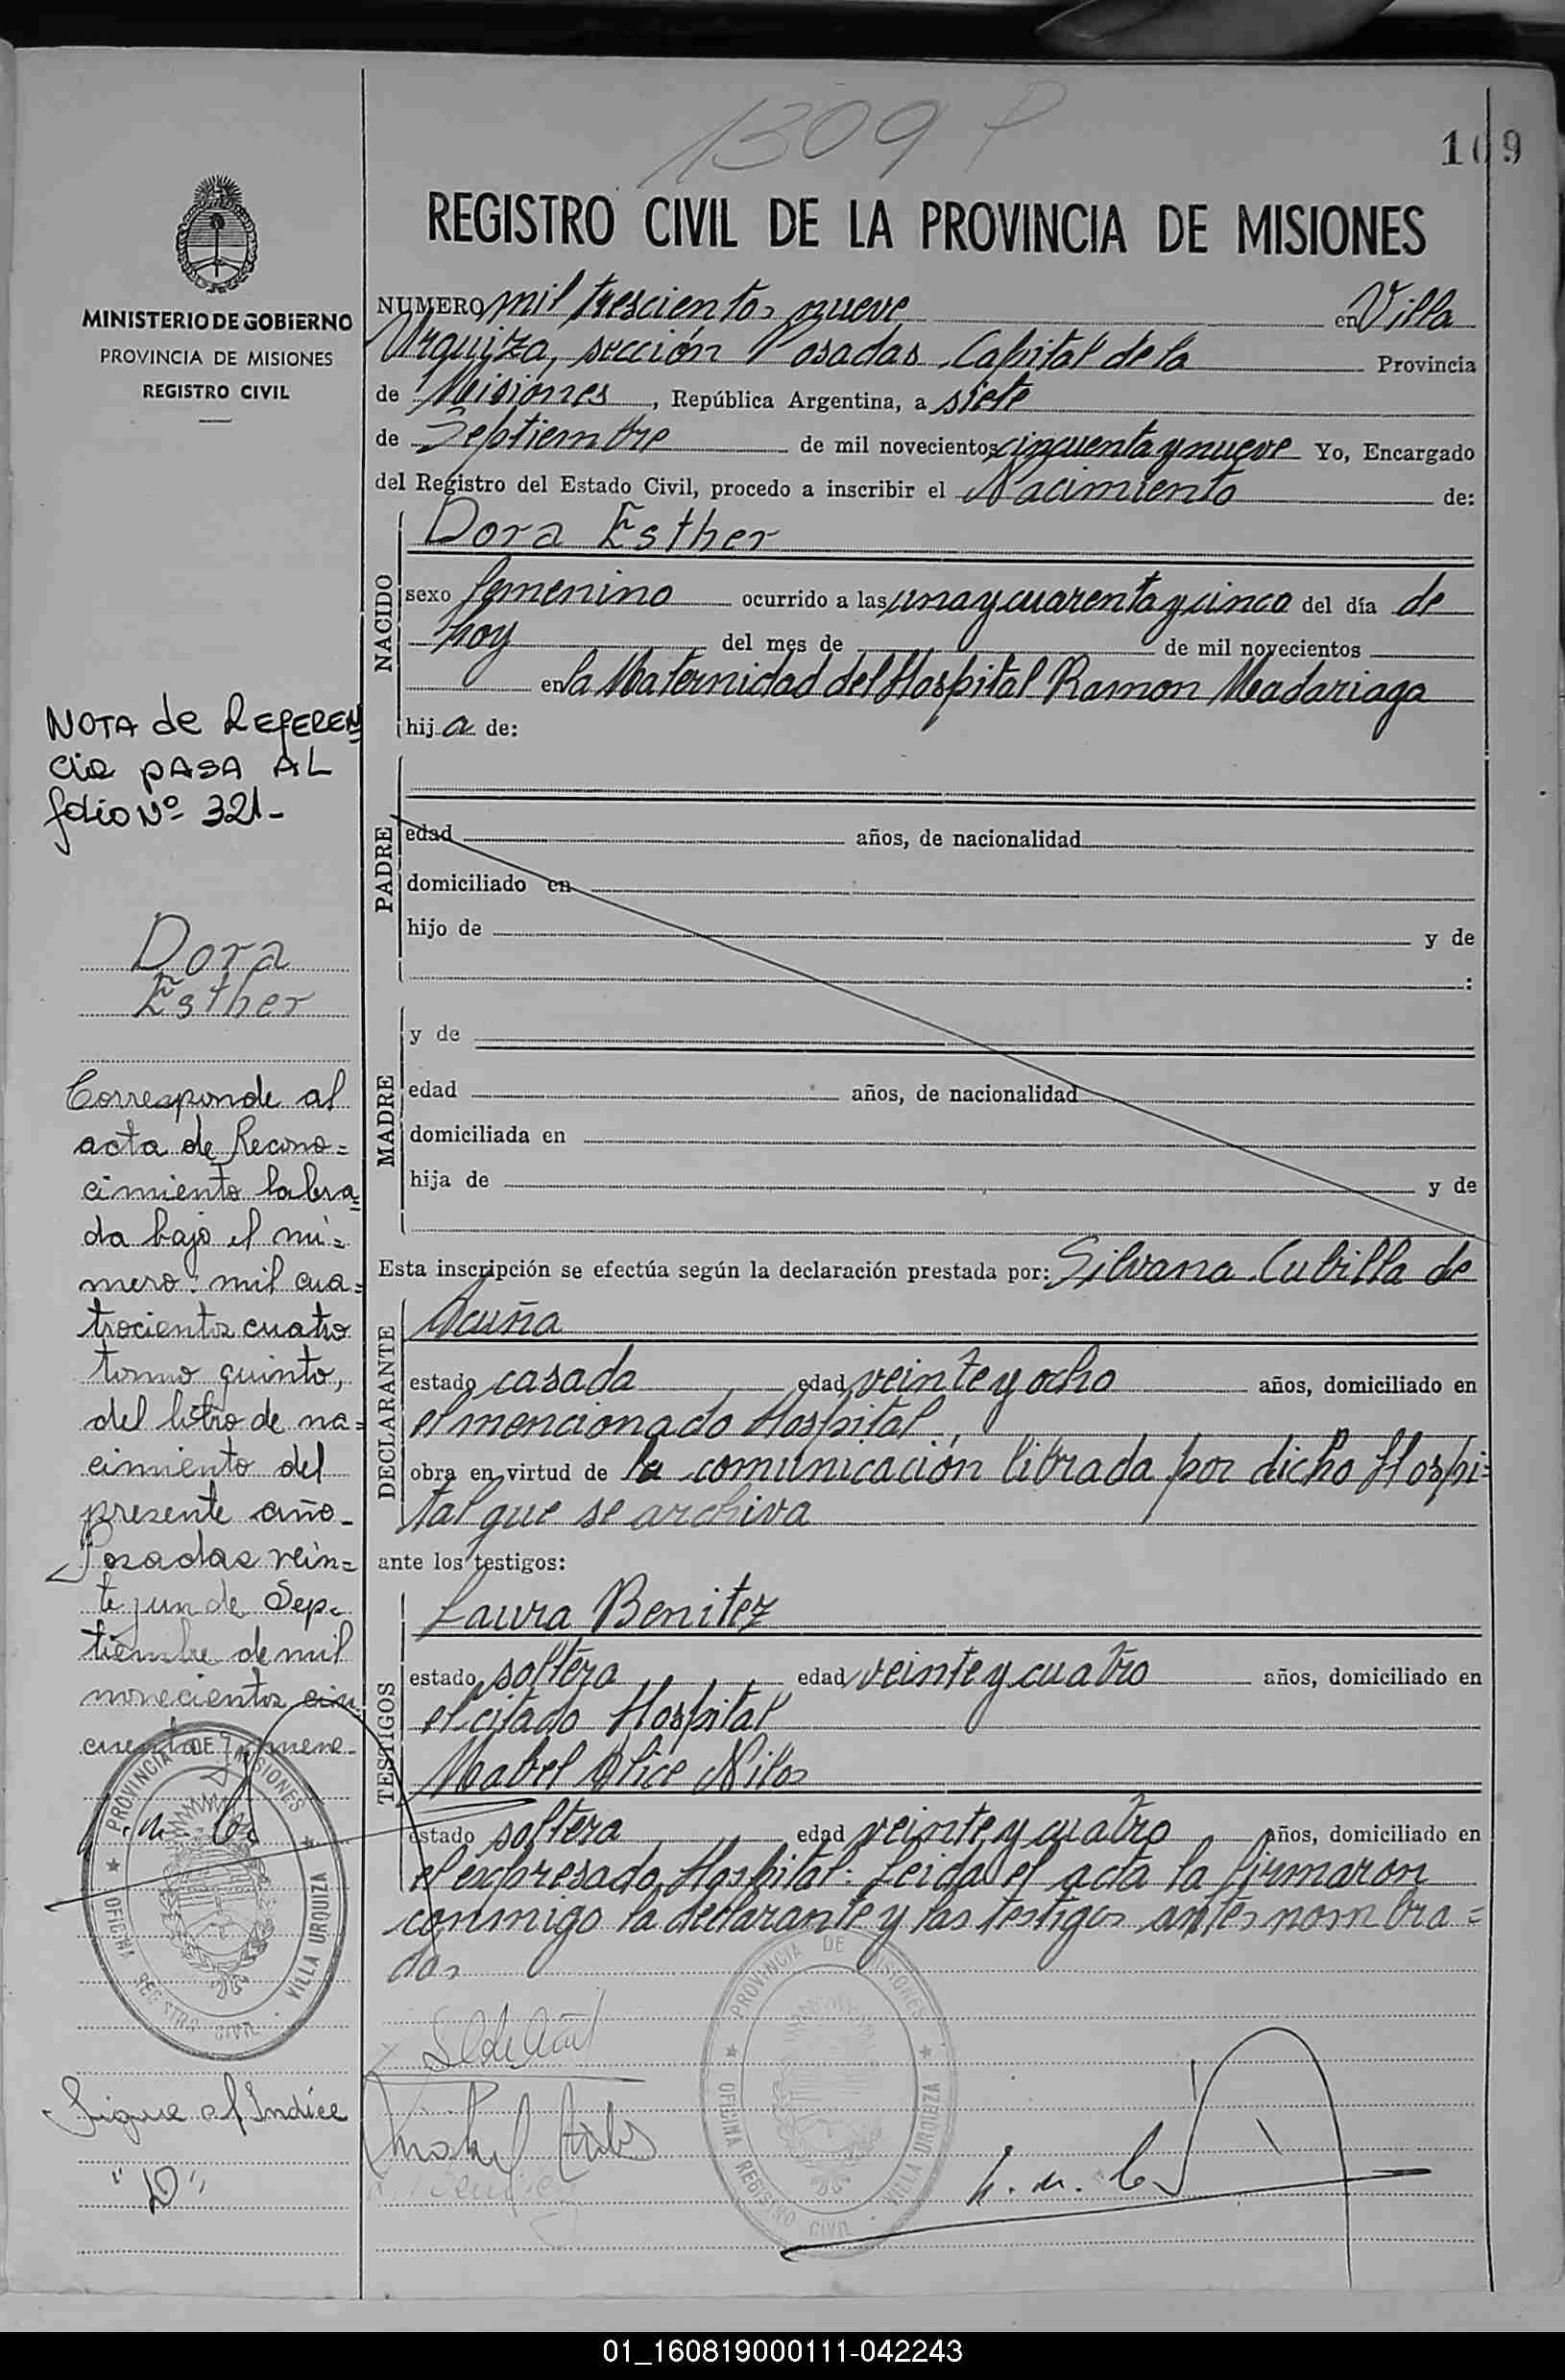 1309 P
109
REGISTRO CIVIL DE LA PROVINCIA DE MISIONES
MINISTERIO DE GOBIERNO
PROVINCIA DE MISIONES
REGISTRO CIVIL
NUMERO mil trescientos nueve en Villa
Urquiza, sección Posadas, Capital de la Provincia
de Misiones, República Argentina, a siete
de Septiembre de mil novecientos cincuenta y nueve Yo, Encargado
del Registro del Estado Civil, procedo a inscribir el Nacimiento de:
NACIDO
Dora Esther
sexo femenino ocurrido a las una y cuarenta y cinco del día de
hoy del mes de de mil novecientos
en la Maternidad del Hospital Ramon Madariaga
hija de:
PADRE
edad años, de nacionalidad
domiciliado en
hijo de y de
:
MADRE
y de
edad años, de nacionalidad
domiciliada en
hija de y de
Esta inscripción se efectúa según la declaración prestada por: Silvana Cubilla de
DECLARANTE
Acuña
estado casada edad veinte y ocho años, domiciliado en
el mencionado Hospital,
obra en virtud de la comunicación librada por dicho Hospi=
tal que se archiva
ante los testigos:
TESTIGOS
Laura Benitez
estado soltera edad veinte y cuatro años, domiciliado en
el citado Hospital
Mabel Alice
estado soltera edad veinte y cuatro años, domiciliado en
el expresado Hospital. Leida el acta la firmaron
conmigo la declarante y las testigos antes nombra=
das
NOTA de REFEREN
cia PASA AL
folio Nº 321-
Dora
Esther
Corresponde al
acta de Recono=
cimiento labra=
da bajo el nú=
mero: mil cua=
trocientos cuatro
tomo quinto,
del libro de na=
cimiento del
presente año-
Posadas vein=
te y un de Sep-
tiembre de mil
novecientos cin
cuenta y nueve-
PROVINCIA DE MISIONES
OFICINA REGISTRO CIVIL - VILLA URQUIZA
Sigue al Indice
"D"
PROVINCIA DE MISIONES
OFICINA REGISTRO CIVIL - VILLA URQUIZA
01_160819000111-042243